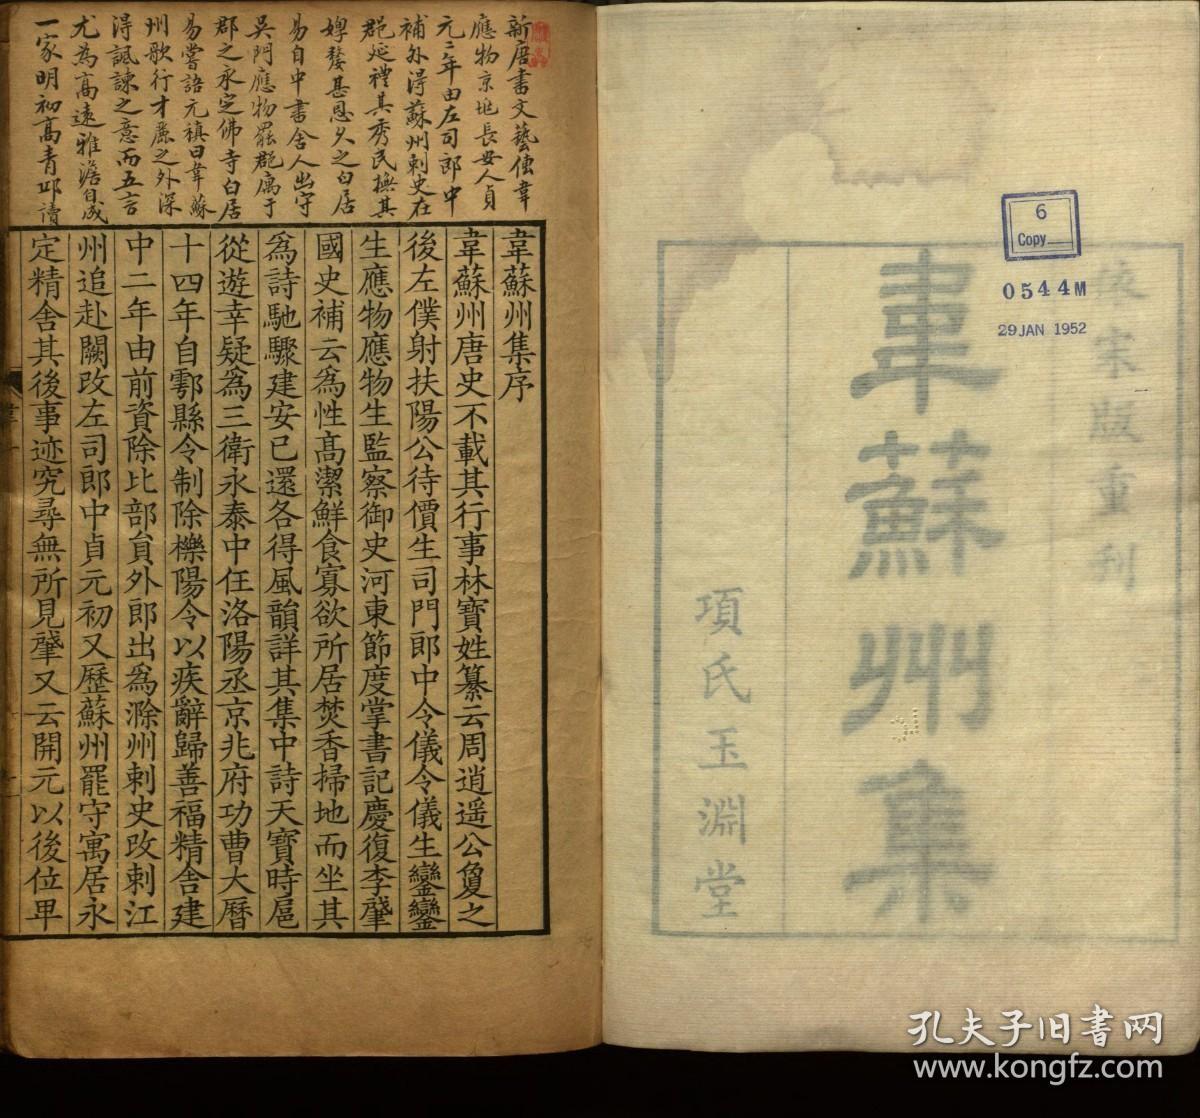 依宋版重刊
韋蘇州集
項氏玉淵堂
6
Copy
0544M
29 JAN 1952
新唐書文藝傳韋
應物京地長安人貞
元二年由左司郎中
補外得蘇州刺史在
郡延禮其秀民撫其
惸嫠甚恩久之白居
易自中書舍人出守
吳門應物罷郡寓于
郡之永定佛寺白居
易嘗語元稹曰韋蘇
州歌行才麗之外深
得諷諫之意而五言
尤為高遠雅澹自成
一家明初高青邱讀
韋蘇州集序
韋蘇州唐史不載其行事林寶姓纂云周逍遥公敻之
後左僕射扶陽公待價生司門郎中令儀令儀生鑾鑾
生應物應物生監察御史河東節度掌書記慶復李肇
國史補云爲性高潔鮮食寡欲所居焚香掃地而坐其
爲詩馳驟建安已還各得風韻詳其集中詩天寶時扈
從遊幸疑爲三衛永泰中任洛陽丞京兆府功曹大曆
十四年自鄠縣令制除櫟陽令以疾辭歸善福精舍建
中二年由前資除比部貟外郎出爲滁州刺史改刺江
州追赴闕改左司郎中貞元初又歷蘇州罷守寓居永
定精舍其後事迹究尋無所見肇又云開元以後位畢
孔夫子旧书网
www.kongfz.com